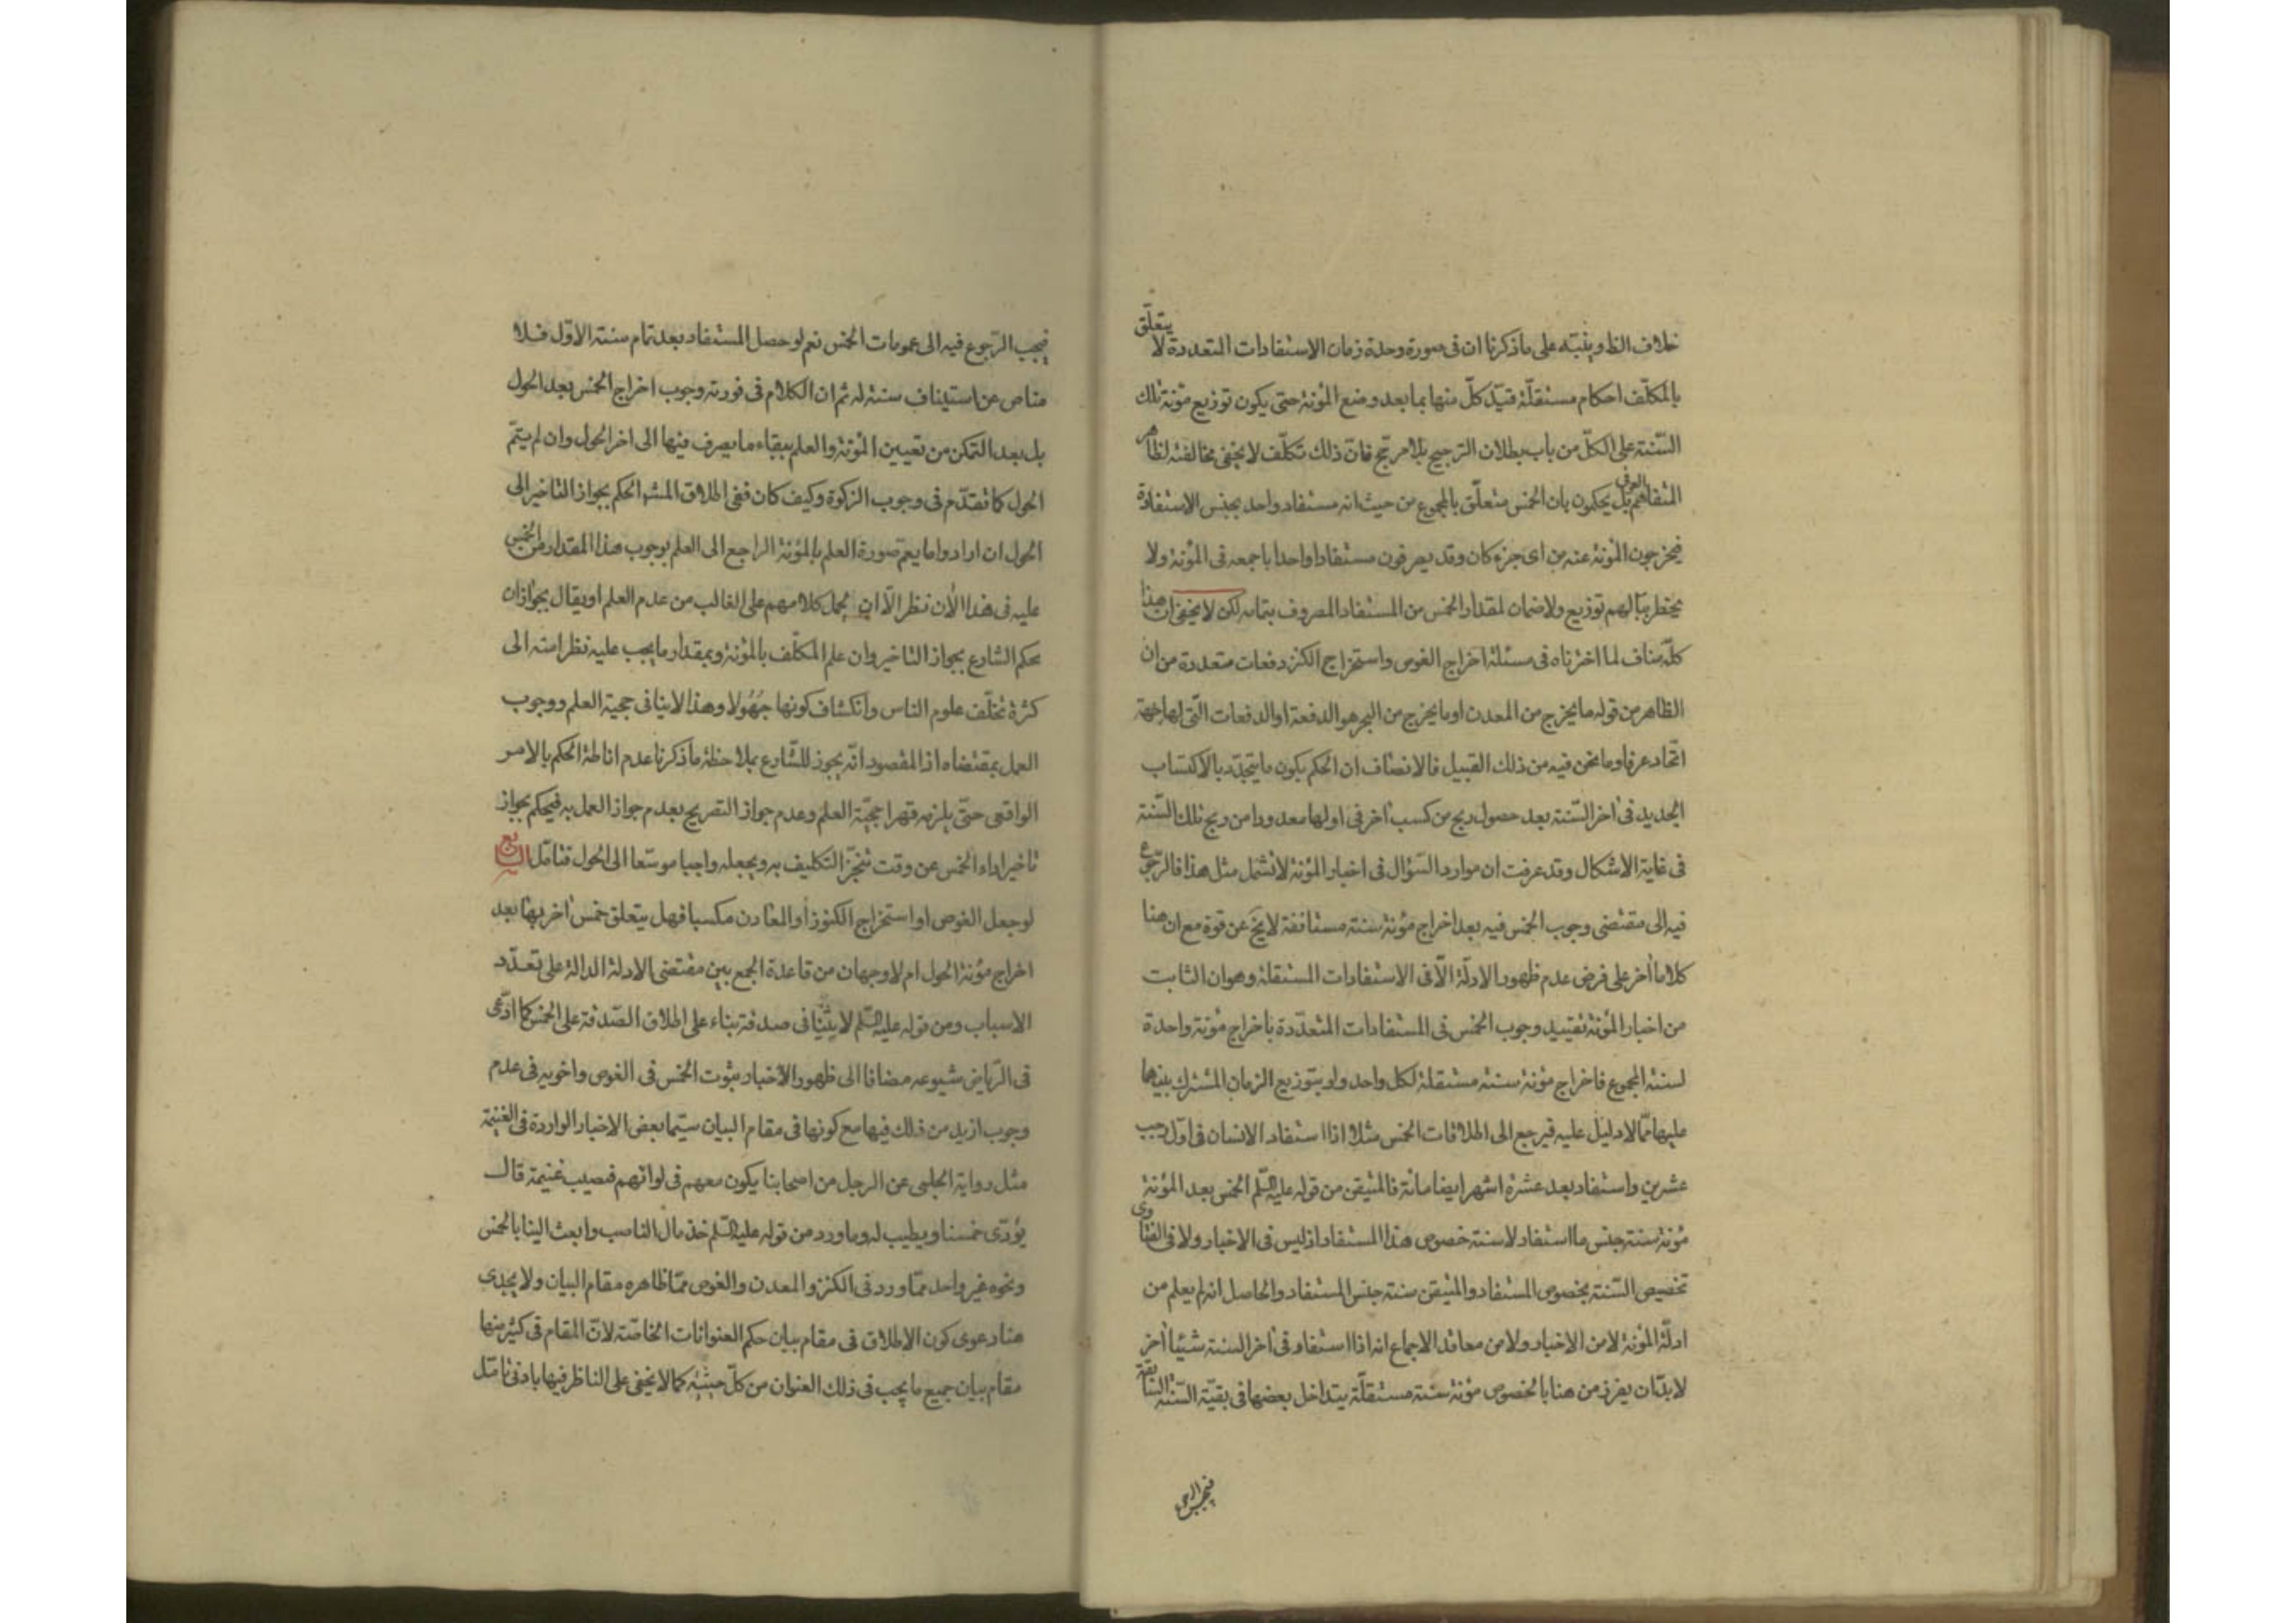 خلاف الظ وينبّه على ما ذكرنا ان فى صورة وحدة زمان الاستفادات المتعددة لا يتعلّق
بالمكلّف احكام مستقلّة قيّد كلّ منها بما بعد وضع المؤنة حتى يكون توزيع مؤنة تلك
السّنة على الكلّ من باب بطلان الترجيح بلا مرجّح فانّ ذلك تكلّف لا يخفى مخالفته لظاهر
المتفاهم العرفى بل يحكمون بان الخمس متعلّق بالمجموع من حيث انه مستفاد واحد بجنس الاستفادة
فيخرجون المؤنة عنه من اى جزء كان وقد يصرفون مستفادا واحدا باجمعه فى المؤنة ولا
يخطر ببالهم توزيع ولا ضمان لمقدار الخمس من المستفاد المصروف بتمامه لكن لا يخفى ان هذا
كلّه مناف لما اخترناه فى مسئلة اخراج الغوص واستخراج الكنز دفعات متعددة من ان
الظاهر من قوله ما يخرج من المعدن او ما يخرج من البحر هو الدفعة او الدفعات الّتى لها جهة
اتّحاد عرفا وما نحن فيه من ذلك القبيل فالانصاف ان الحكم بكون ما يتجدّد بالاكتساب
الجديد فى اخر السّنة بعد حصول ربح من كسب اخر فى اولها معدودا من ربح تلك السّنة
فى غاية الاشكال وقد عرفت ان موارد السّؤال فى اخبار المؤنة لا تشمل مثل هذا فالرّجوع
فيه الى مقتضى وجوب الخمس فيه بعد اخراج مؤنة سنة مستانفة لا يخ عن قوة مع ان هنا
كلاما اخر على فرض عدم ظهور الادلّة الّا فى الاستفادات المستقلة وهو ان الثابت
من اخبار المؤنة تقييد وجوب الخمس فى المستفادات المتعدّدة باخراج مؤنة واحدة
لسنة المجموع فاخراج مؤنة سنة مستقلة لكل واحد ولو بتوزيع الزمان المشترك بينهما
عليهما ممّا لا دليل عليه فيرجع الى اطلاقات الخمس مثلا اذا استفاد الانسان فى اوّل رجب
عشرين واستفاد بعد عشرة اشهر ايضا مائة فالمتيقن من قوله عليه السّلم الخمس بعد المؤنة
مؤنة سنة جنس ما استفاد لا سنة خصوص هذا المستفاد اذ ليس فى الاخبار ولا فى الفتاوى
تخصيص السّنة بخصوص المستفاد والمتيقن سنة جنس المستفاد والحاصل انه لم يعلم من
ادلّة المؤنة لا من الاخبار ولا من معاقد الاجماع انه اذا استفاد فى اخر السنة شيئا اخر
لا بدّ ان يفرز من هنا بالخصوص مؤنة سنة مستقلّة يتداخل بعضها فى بقيّة السّنة السابقة
فيجب الرجوع
فيجب الرّجوع فيه الى عمومات الخمس نعم لو حصل المستفاد بعد تمام سنة الاوّل فلا
مناص عن استيناف سنة له ثم ان الكلام فى فوريّة وجوب اخراج الخمس بعد الحول
بل بعد التمكن من تعيين المؤنة والعلم ببقاء ما يصرف فيها الى اخر الحول وان لم يتمّ
الحول كما تقدّم فى وجوب الزكوة وكيف كان ففى اطلاق المش الحكم بجواز التاخير الى
الحول ان ارادوا ما يعم صورة العلم بالمؤنة الراجع الى العلم بوجوب هذا المقدار من الخمس
عليه فى هذا الان نظر الّا ان يحمل كلامهم على الغالب من عدم العلم او يقال بجواز ان
يحكم الشارع بجواز التاخير وان علم المكلّف بالمؤنة وبمقدار ما يجب عليه نظرا منه الى
كثرة تخلّف علوم الناس وانكشاف كونها جهولا وهذا لا ينافى حجية العلم ووجوب
العمل بمقتضاه اذ المقصود انّه يجوز للشّارع بملاحظة ما ذكرنا عدم اناطة الحكم بالامر
الواقعى حتّى يلزمه قهرا حجيّة العلم وعدم جواز التصريح بعدم جواز العمل به فيحكم بجواز
تاخير اداء الخمس عن وقت تنجّز التكليف به ويجعله واجبا موسّعا الى الحول فتامّل السابع
لو جعل الغوص او استخراج الكنوز او المعادن مكسبا فهل يتعلق خمس اخر بها بعد
اخراج مؤنة الحول ام لا وجهان من قاعدة الجمع بين مقتضى الادلة الدالة على تعدّد
الاسباب ومن قوله عليه السّلم لا يثنيا فى صدقة بناء على اطلاق الصّدقة على الخمس كما ادّعى
فى الرّياض شيوعه مضافا الى ظهور الأخبار بثوت الخمس فى الغوص واخويه فى عدم
وجوب ازيد من ذلك فيها مع كونها فى مقام البيان سيّما بعض الاخبار الواردة فى الغنيمة
مثل رواية الحلبى عن الرجل من اصحابنا يكون معهم فى لوائهم فيصيب غنيمة قال
يؤدّى خمسنا ويطيب له وما ورد من قوله عليه السّلم خذ مال الناصب وابعث الينا بالخمس
ونحوه غير واحد ممّا ورد فى الكنز والمعدن والغوص ممّا ظاهره مقام البيان ولا يجدى
هنا دعوى كون الاطلاق فى مقام بيان حكم العنوانات الخاصّة لانّ المقام فى كثير منها
مقام بيان جميع ما يجب فى ذلك العنوان من كلّ حيثيّة كما لا يخفى على الناظر فيها بادنى تامّل